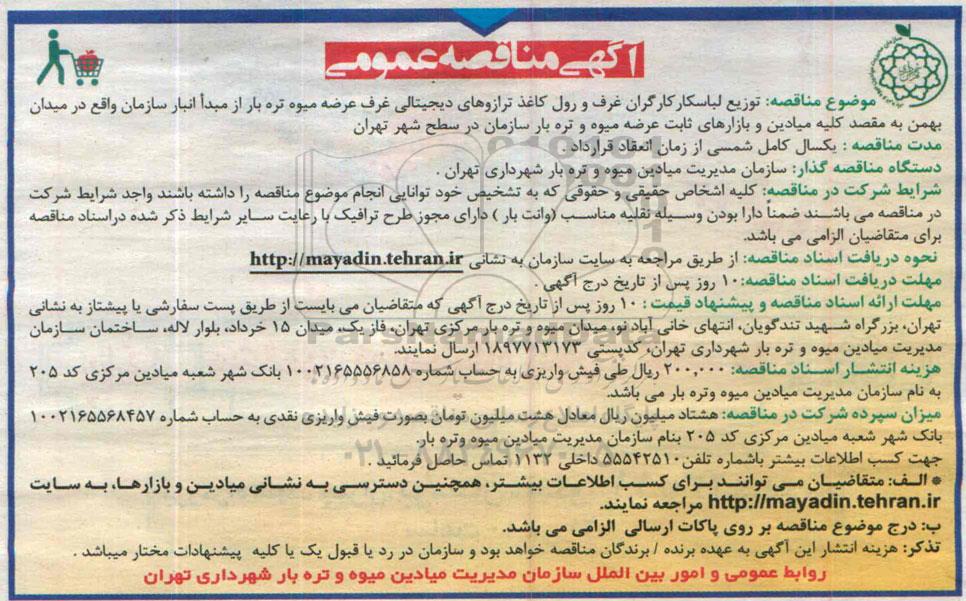 آگهی مناقصه عمومی
موضوع مناقصه: توزیع لباسکارکارگران غرف و رول کاغذ ترازوهای دیجیتالی غرف عرضه میوه تره بار از مبدأ انبار سازمان واقع در میدان
بهمن به مقصد کلیه میادین و بازارهای ثابت عرضه میوه و تره بار سازمان در سطح شهر تهران
مدت مناقصه : یکسال کامل شمسی از زمان انعقاد قرارداد
دستگاه مناقصه گذار: سازمان مدیریت میادین میوه و تره بار شهرداری تهران .
شرایط شرکت در مناقصه: کلیه اشخاص حقیقی و حقوقی که به تشخیص خود توانایی انجام موضوع مناقصه را داشته باشند واجد شرایط شرکت
در مناقصه می باشند ضمناً دارا بودن وسیله نقلیه مناسب (وانت بار ) دارای مجوز طرح ترافیک با رعایت سایر شرایط ذکر شده دراسناد مناقصه
برای متقاضیان الزامی می باشد.
نحوه دریافت اسناد مناقصه: از طریق مراجعه به سایت سازمان به نشانی http://mayadin.tehran.ir
مهلت دریافت اسناد مناقصه:۱۰ روز پس از تاریخ درج آگهی .
مهلت ارائه اسناد مناقصه و پیشنهاد قیمت : ۱۰ روز پس از تاریخ درج آگهی که متقاضیان می بایست از طریق پست سفارشی یا پیشتاز به نشانی
تهران، بزرگراه شهید تندگویان، انتهای خانی آباد نو، میدان میوه و تره بار مرکزی تهران، فاز یک، میدان ۱۵ خرداد، بلوار لاله، ساختمان سازمان
مدیریت میادین میوه و تره بار شهرداری تهران، کدپستی ۱۸۹۷۷۱۳۱۷۳ ارسال نمایند.
هزینه انتشار اسناد مناقصه: ۲۰۰,۰۰۰ ریال طی فیش واریزی به حساب شماره ۱۰۰۲۱۶۵۵۵۶۸۵۸ بانک شهر شعبه میادین مرکزی کد ۲۰۵
به نام سازمان مدیریت میادین میوه وتره بار می باشد.
میزان سپرده شرکت در مناقصه: هشتاد میلیون ریال معادل هشت میلیون تومان بصورت فیش واریزی نقدی به حساب شماره ۱۰۰۲۱۶۵۵۶۸۴۵۷
بانک شهر شعبه میادین مرکزی کد ۲۰۵ بنام سازمان مدیریت میادین میوه وتره بار.
جهت کسب اطلاعات بیشتر باشماره تلفن۵۵۵۴۲۵۱۰ داخلی ۱۱۳۲ تماس حاصل فرمائید .
* الف: متقاضیان می توانند برای کسب اطلاعات بیشتر، همچنین دسترسی به نشانی میادین و بازارها، به سایت
http://mayadin.tehran.ir مراجعه نمایند.
ب: درج موضوع مناقصه بر روی پاکات ارسالی الزامی می باشد.
تذکر: هزینه انتشار این آگهی به عهده برنده / برندگان مناقصه خواهد بود و سازمان در رد یا قبول یک یا کلیه پیشنهادات مختار میباشد .
روابط عمومی و امور بین الملل سازمان مدیریت میادین میوه و تره بار شهرداری تهران